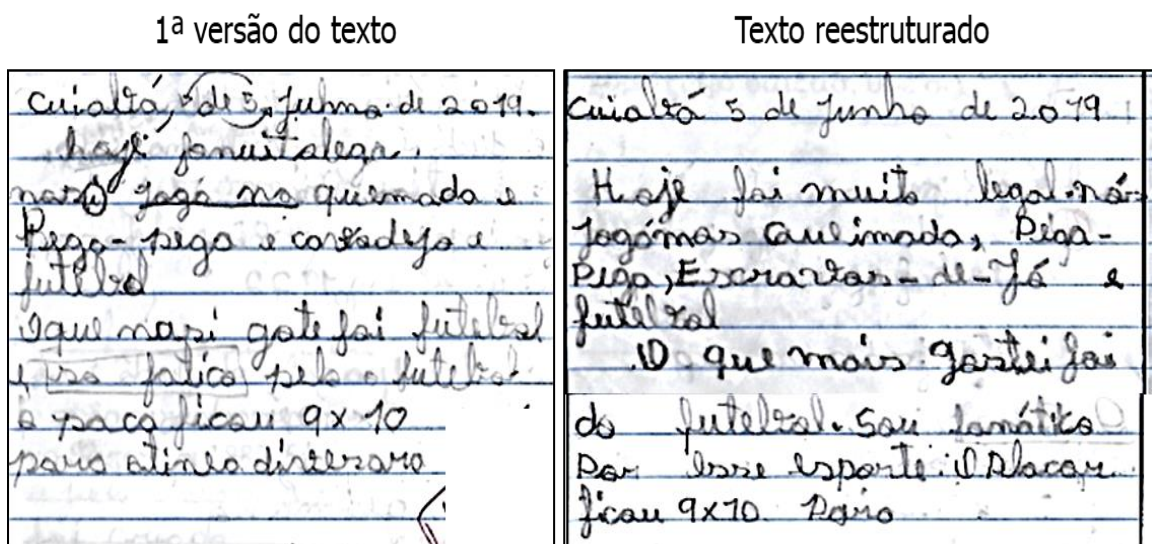 1ª versão do texto
Cuiabá, 5 de 5, Julho de 2019.
haje fomuitalega.
nasi joga na quemada e
Pega-pega e
futebol
Oque masi gote foi futebol
e so fatico pelo futebol
o paca ficou 9x10
para
Texto reestruturado
Cuiabá 5 de Junho de 2019
Hoje foi muito legal. nós
jogamos queimada, Pega-
Pega, Escravos-de-Jó e
futebol
O que mais gostei foi
do futebol. Sou fanático
Por esse esporte. O Placar
ficou 9x10 Para